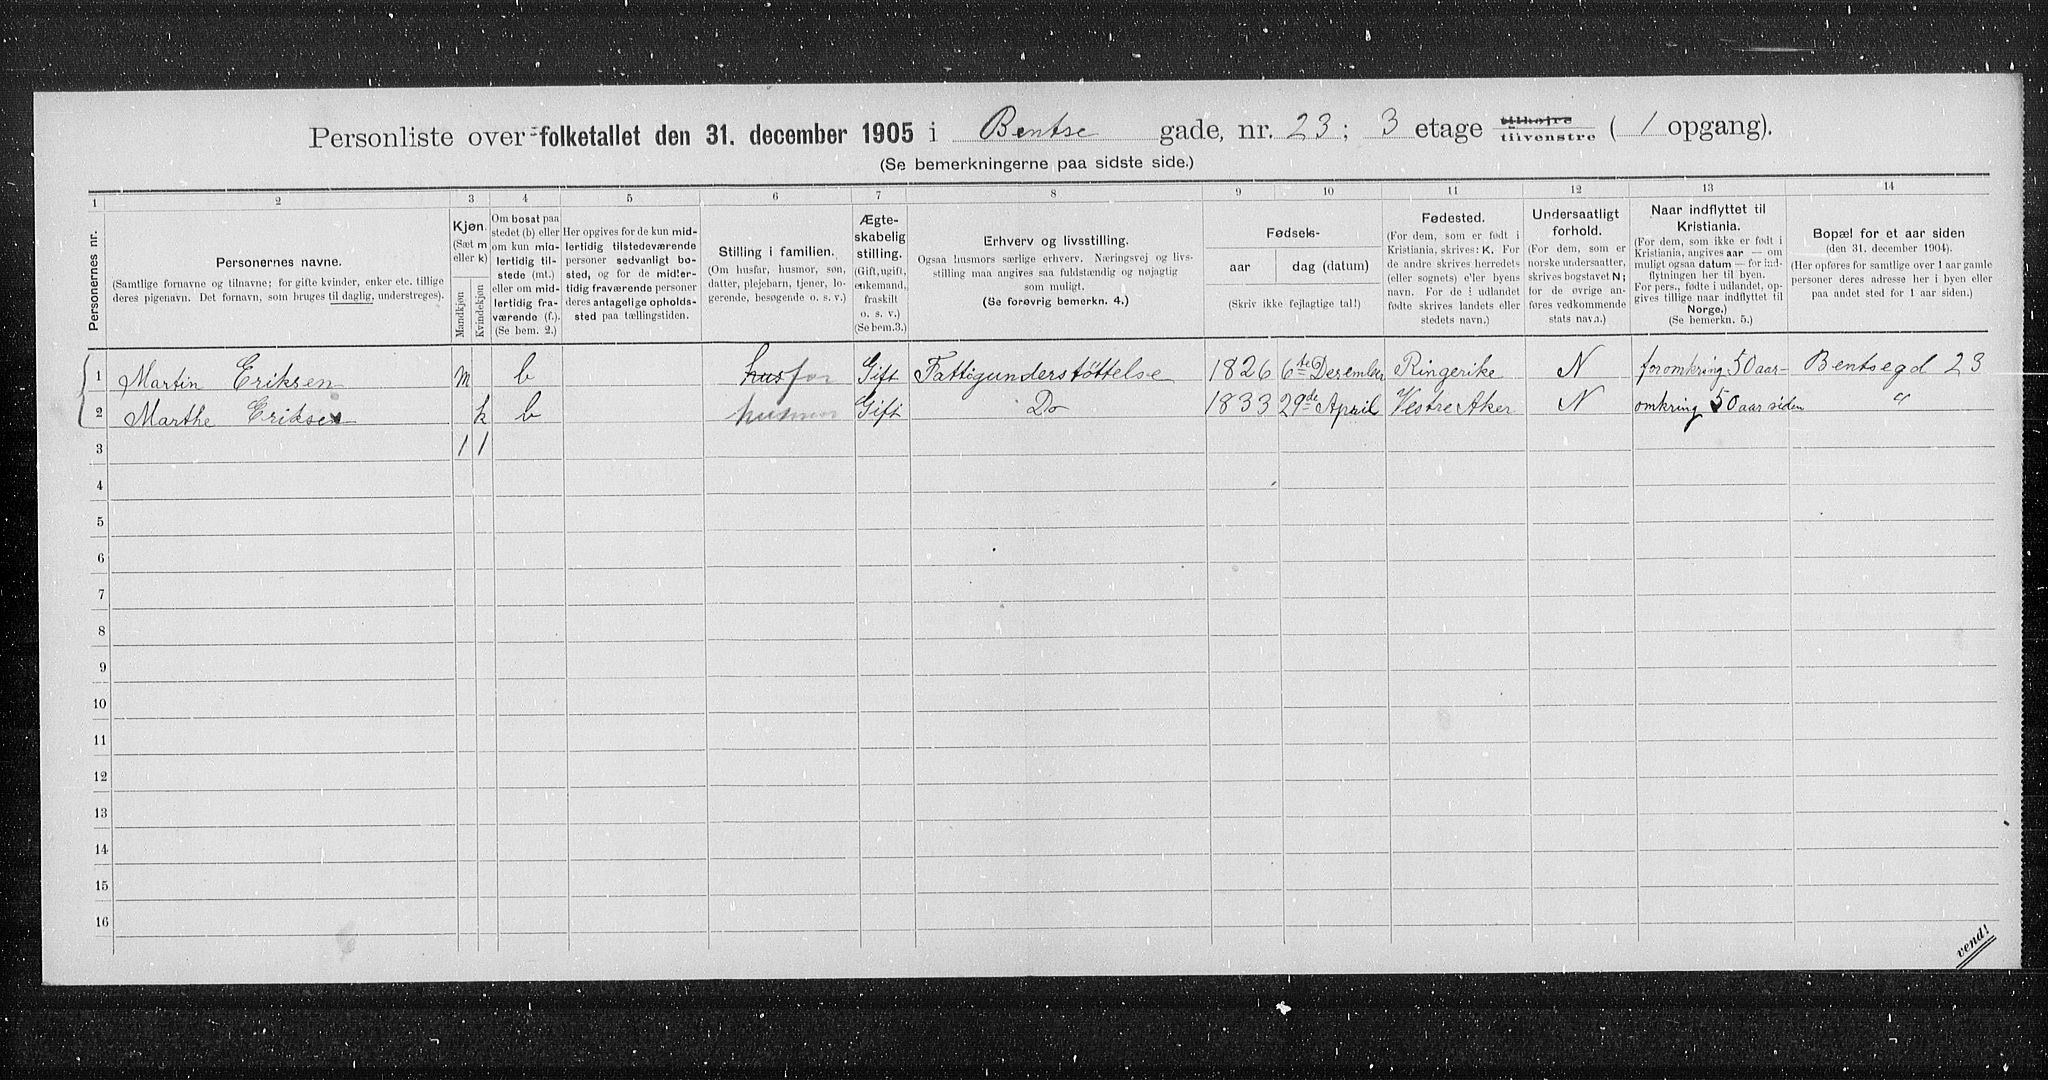 Personliste over folketallet den 31. december 1905 i Bentse gade, nr. 23; 3 etage tilhøire tilvenstre ( 1 opgang).
(Se bemerkningerne paa sidste side.)
1 2 3 4 5 6 7 8 9 10 11 12 13 14
Personernes nr.
Personernes navne.
(Samtlige fornavne og tilnavne; for gifte kvinder, enker etc. tillige
deres pigenavn. Det fornavn, som bruges til daglig, understreges).
Kjøn.
(Sæt m
eller k)
Mandkjøn
Kvindekjøn
Om bosat paa
stedet (b) eller
om kun mid-
lertidig til-
stede (mt.)
eller om mid-
lertidig fra-
værende (f.).
(Se bem. 2.)
Her opgives for de kun mid-
lertidig tilstedeværende
personer sedvanlig bo-
sted, og for de midler-
tidig fraværende personer
deres antagelige opholds-
sted paa tællingstiden.
Stilling i familien.
(Om husfar, husmor, søn,
datter, plejebarn, tjener, lo-
gerende, besøgende o. s. v.)
Ægte-
skabelig
stilling.
(Gift, ugift,
enkemand,
fraskilt
o. s. v.)
(Se bem. 3.)
Erhverv og livsstilling.
Ogsaa husmors særlige erhverv. Næringsvej og livs-
stilling maa angives saa fuldstændig og nøjagtig
som muligt.
(Se forøvrig bemerkn. 4.)
Fødsels-
aar dag (datum)
(Skriv ikke fejlagtige tal!)
Fødested.
(For dem, som er født i
Kristiania, skrives: K. For
de andre skrives herredets
(eller sognets) eller byens
navn. For de i udlandet
fødte skrives landets eller
stedets navn.)
Undersaatligt
forhold.
(For dem, som er
norske undersaatter,
skrives bogstavet N;
for de øvrige an-
føres vedkommende
stats navn.)
Naar indflyttet til
Kristiania.
(For dem, som ikke er født i
Kristiania, angives aar — om
muligt ogsaa datum — for ind-
flytningen her til byen.
For pers., fødte i udlandet, op-
gives tillige naar indflyttet til
Norge.)
(Se bemerkn. 5.)
Bopæl for et aar siden
(den 31. december 1904).
(Her opføres for samtlige over 1 aar gamle
personer deres adresse her i byen eller
paa andet sted for 1 aar siden.)
1 Martin Eriksen m b husfar Gift Fattigunderstøttelse 1826 6te Desember Ringerike N foromkring 50 aar- Bentsegd 23
2 Marthe Eriksen k b husmor Gift Do 1833 29de April Vestre Aker N omkring 50 aar siden "
3 1 1
4
5
6
7
8
9
10
11
12
13
14
15
16
vend!